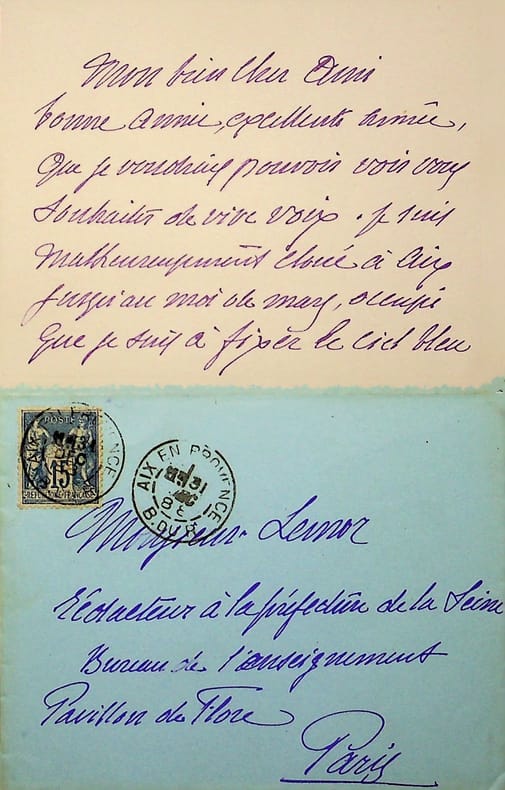 Mon bien cher Ami
bonne année, excellente année,
que je voudrais pouvoir vous
souhaiter de vive voix. je suis
malheureusement cloué à Aix
jusqu'au moi de mars, occupé
que je suis à fixer le ciel bleu
POSTE
15
AIX EN PROVENCE
31
DEC
B. DU R.
Monsieur Lenoir
Rédacteur à la préfecture de la Seine
Bureau de l'enseignement
Pavillon de Flore
Paris